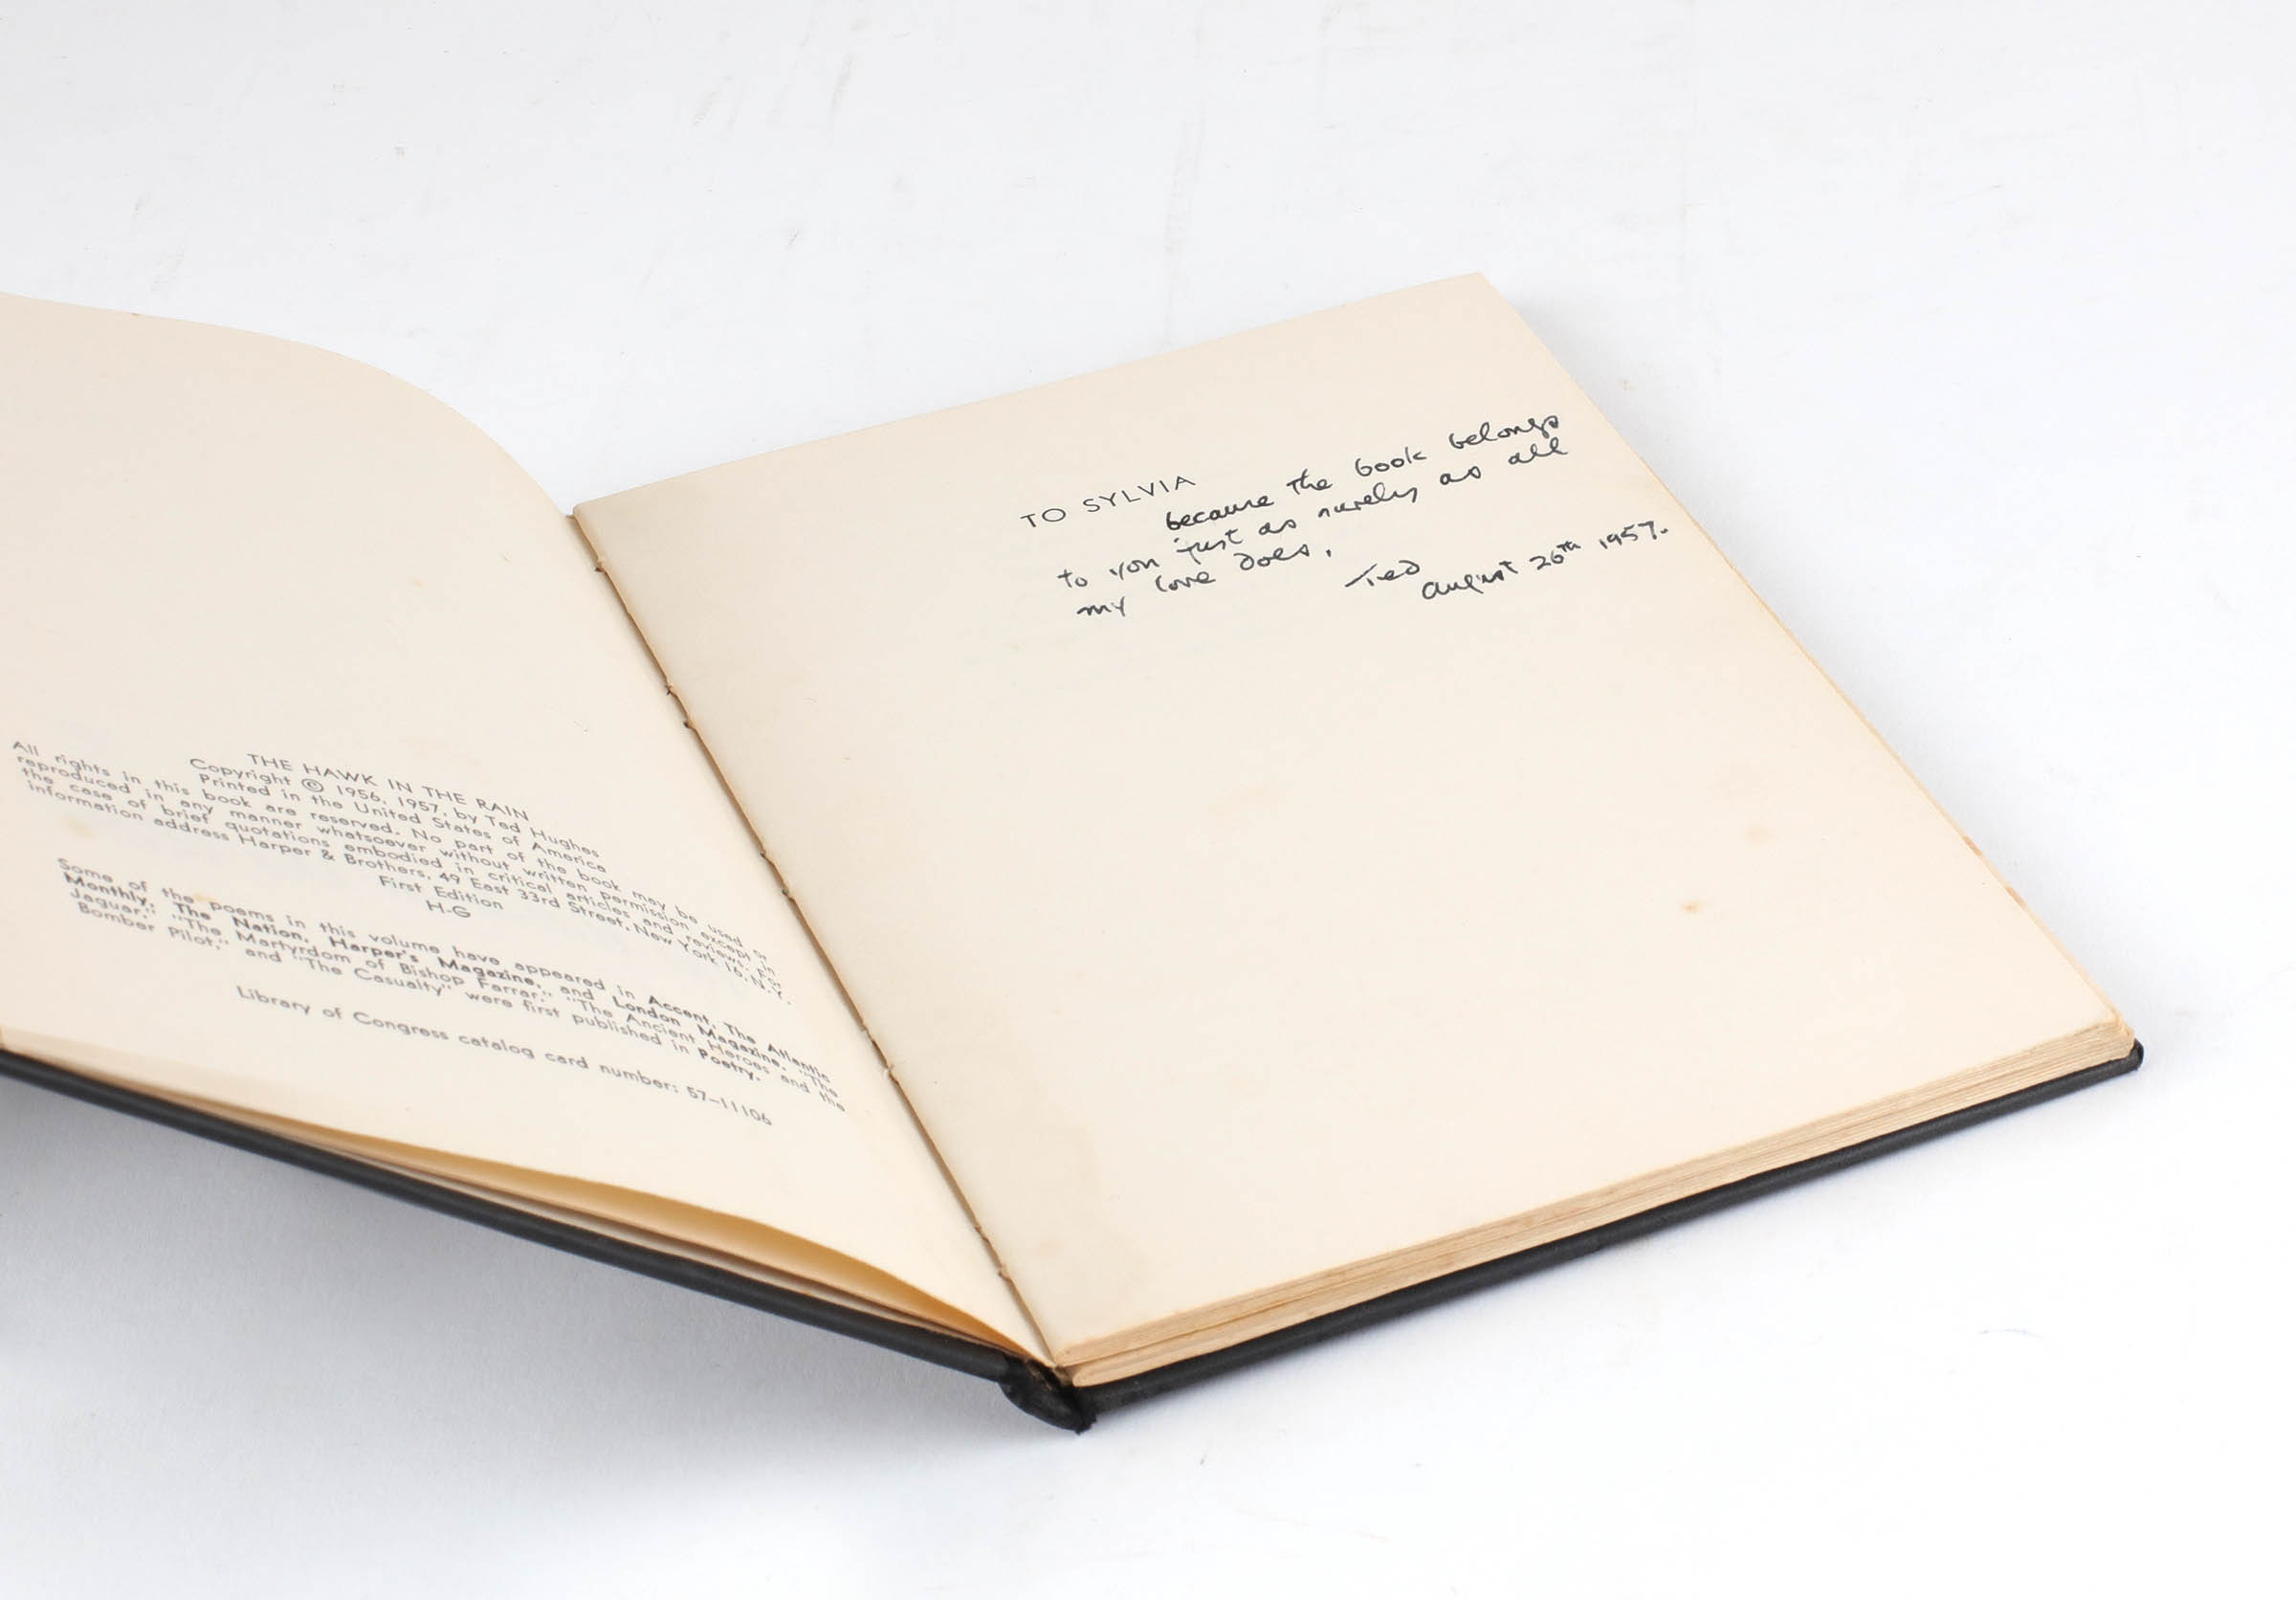 THE HAWK IN THE RAIN
Copyright © 1956, 1957, by Ted Hughes
Printed in the United States of America
All rights in this book are reserved. No part of the book may be used or
reproduced in any manner whatsoever without written permission except in
the case of brief quotations embodied in critical articles and reviews. For
information address Harper & Brothers, 49 East 33rd Street, New York 16, N.Y.
First Edition
H-G
Some of the poems in this volume have appeared in Accent, The Atlantic
Monthly, The Nation, Harper's Magazine, and London Magazine. "The
Jaguar," "The Martyrdom of Bishop Farrar," "The Ancient Heroes and the
Bomber Pilot," and "The Casualty" were first published in Poetry.
Library of Congress catalog card number: 57-11106
TO SYLVIA
because the book belongs
to you just as surely as all
my love does.
Ted
August 26th 1957.